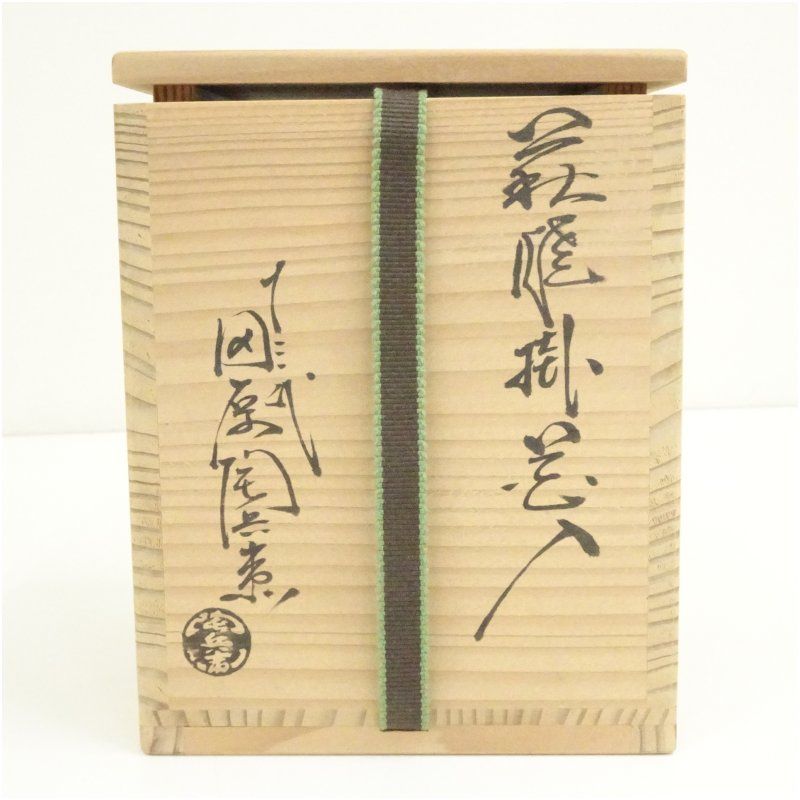 萩焼掛花入
十三代
田原陶兵衛
陶兵衛